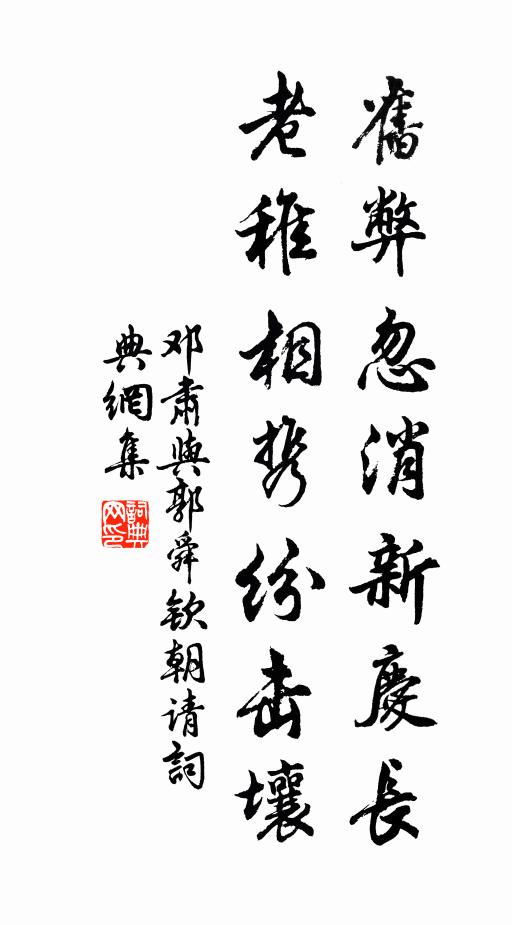 舊弊忽消新慶長
老稚相携纷击壤
邓肃與郭舜钦朝请詞
典網集
詞典网印